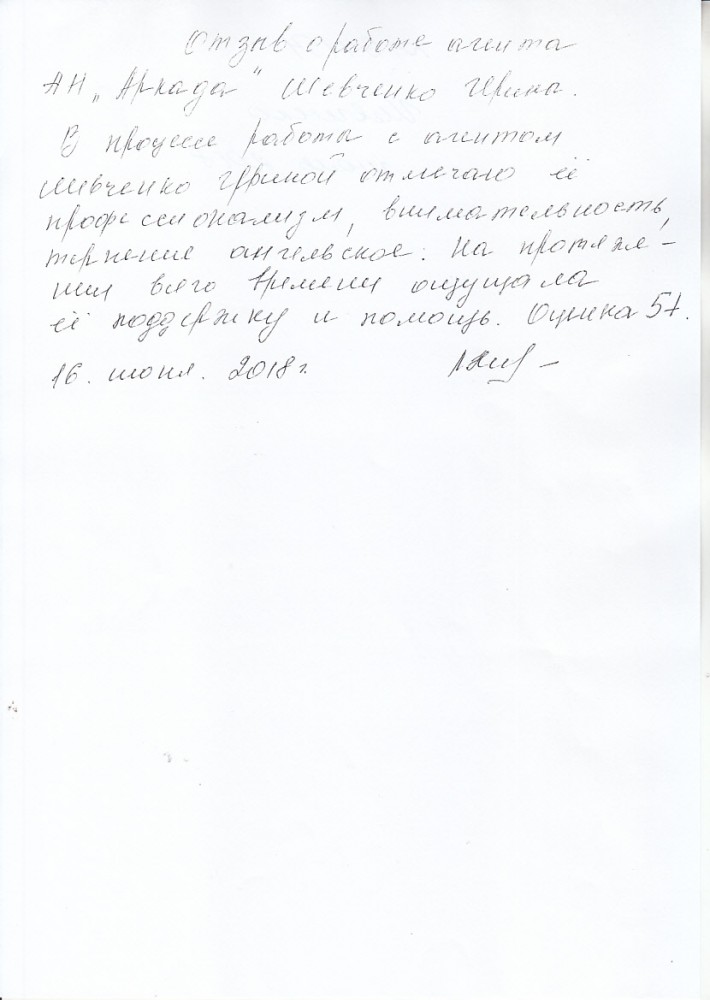 Отзыв о работе агента
АН "Аркада" Шевченко Ирина.
В процессе работы с агентом
Шевченко Ириной отмечаю её
профессионализм, внимательность,
терпение ангельское. На протяже-
нии всего времени ощущала
её поддержку и помощь. Оценка 5+.
16. июня. 2018 г.